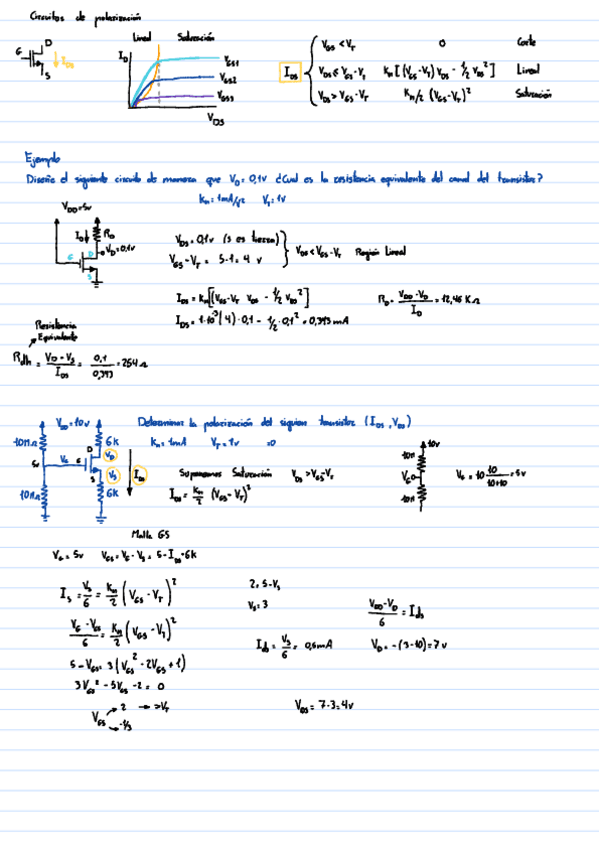 Circuitos de polarización
Lineal Saturación
G D S I_DS
I_D V_GS1 V_GS2 V_GS3 V_DS
I_DS { V_GS < V_T 0 Corte
V_DS ≤ V_GS - V_T K_n [(V_GS - V_T) V_DS - 1/2 V_DS²] Lineal
V_DS > V_GS - V_T K_n/2 (V_GS - V_T)² Saturación
Ejemplo
Diseñe el siguiente circuito de manera que V_D = 0,1v ¿Cual es la resistencia equivalente del canal del transistor?
K_n = 1mA/v² V_T = 1v
V_DD = 5v
I_D ↓ R_D
V_D = 0,1v
G D S
V_DS = 0,1v (S es tierra)
V_GS - V_T = 5-1 = 4 v } V_DS < V_GS - V_T Región Lineal
I_DS = K_n [(V_GS - V_T V_DS - 1/2 V_DS²]
I_DS = 1·10³(4)·0,1 - 1/2·0,1² = 0,393mA
R_D = (V_DD - V_D)/I_D = 12,46 KΩ
Resistencia
Equivalente
= (V_D - V_S)/I_DS = 0,1/0,393 = 254 Ω
Determinar la polarización del siguien transistor (I_DS, V_DS)
K_n = 1mA V_T = 1v =0
V_DD = 10v
10MΩ 6K
5v V_G G D V_D
S V_S I_DS
10MΩ 6K
Suponemos Saturación V_DS > V_GS - V_T
I_DS = K_n/2 (V_GS - V_T)²
10v
10M
V_G
10M
V_G = 10 10/(10+10) = 5v
Malla GS
V_G = 5v V_GS = V_G - V_S = 5 - I_DS·6K
I_S = V_S/6 = K_n/2 (V_GS - V_T)²
(V_G - V_GS)/6 = K_n/2 (V_GS - V_T)²
5 - V_GS = 3(V_GS² - 2V_GS + 1)
3V_GS² - 5V_GS - 2 = 0
V_GS ↗ 2 → > V_T
↘ -1/3
2 = 5 - V_S
V_S = 3
I_ds = V_S/6 = 0,5mA
(V_DD - V_D)/6 = I_ds
V_D = -(3-10) = 7v
V_DS = 7-3 = 4v